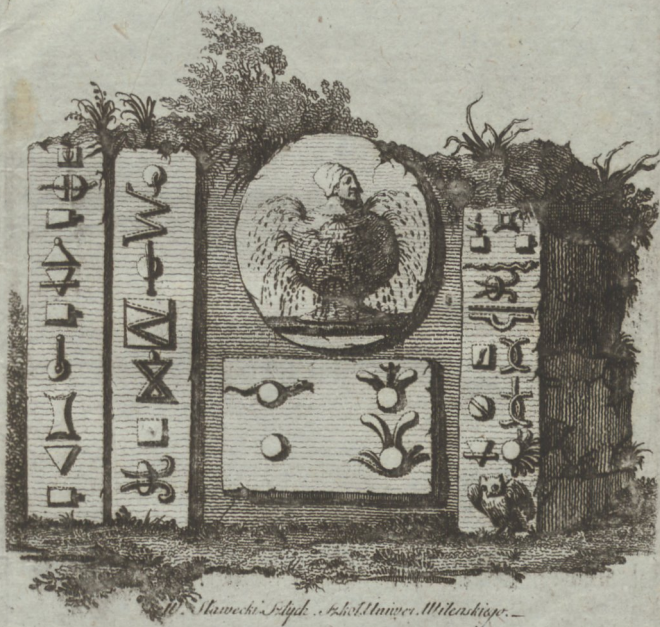 W. Sławecki Sztych. Szkol. Uniwer. Wilenskiego.